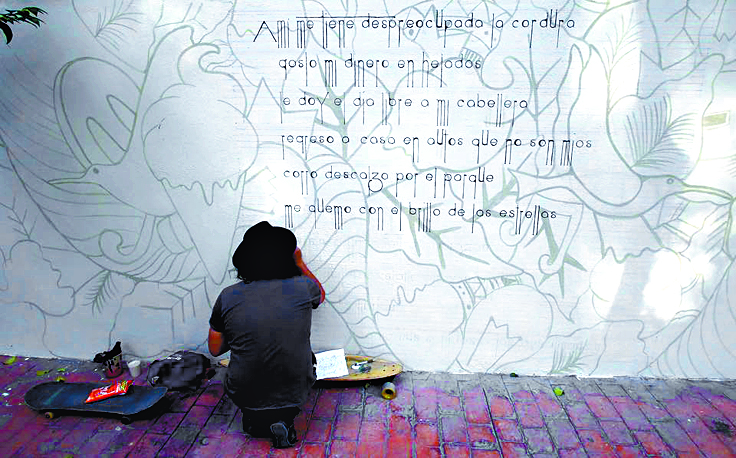 A mi me tiene despreocupada la cordura
gasto mi dinero en helados
le doy el día libre a mi cabellera
regreso a casa en autos que no son míos
corro descalza por el parque
me quemo con el brillo de las estrellas